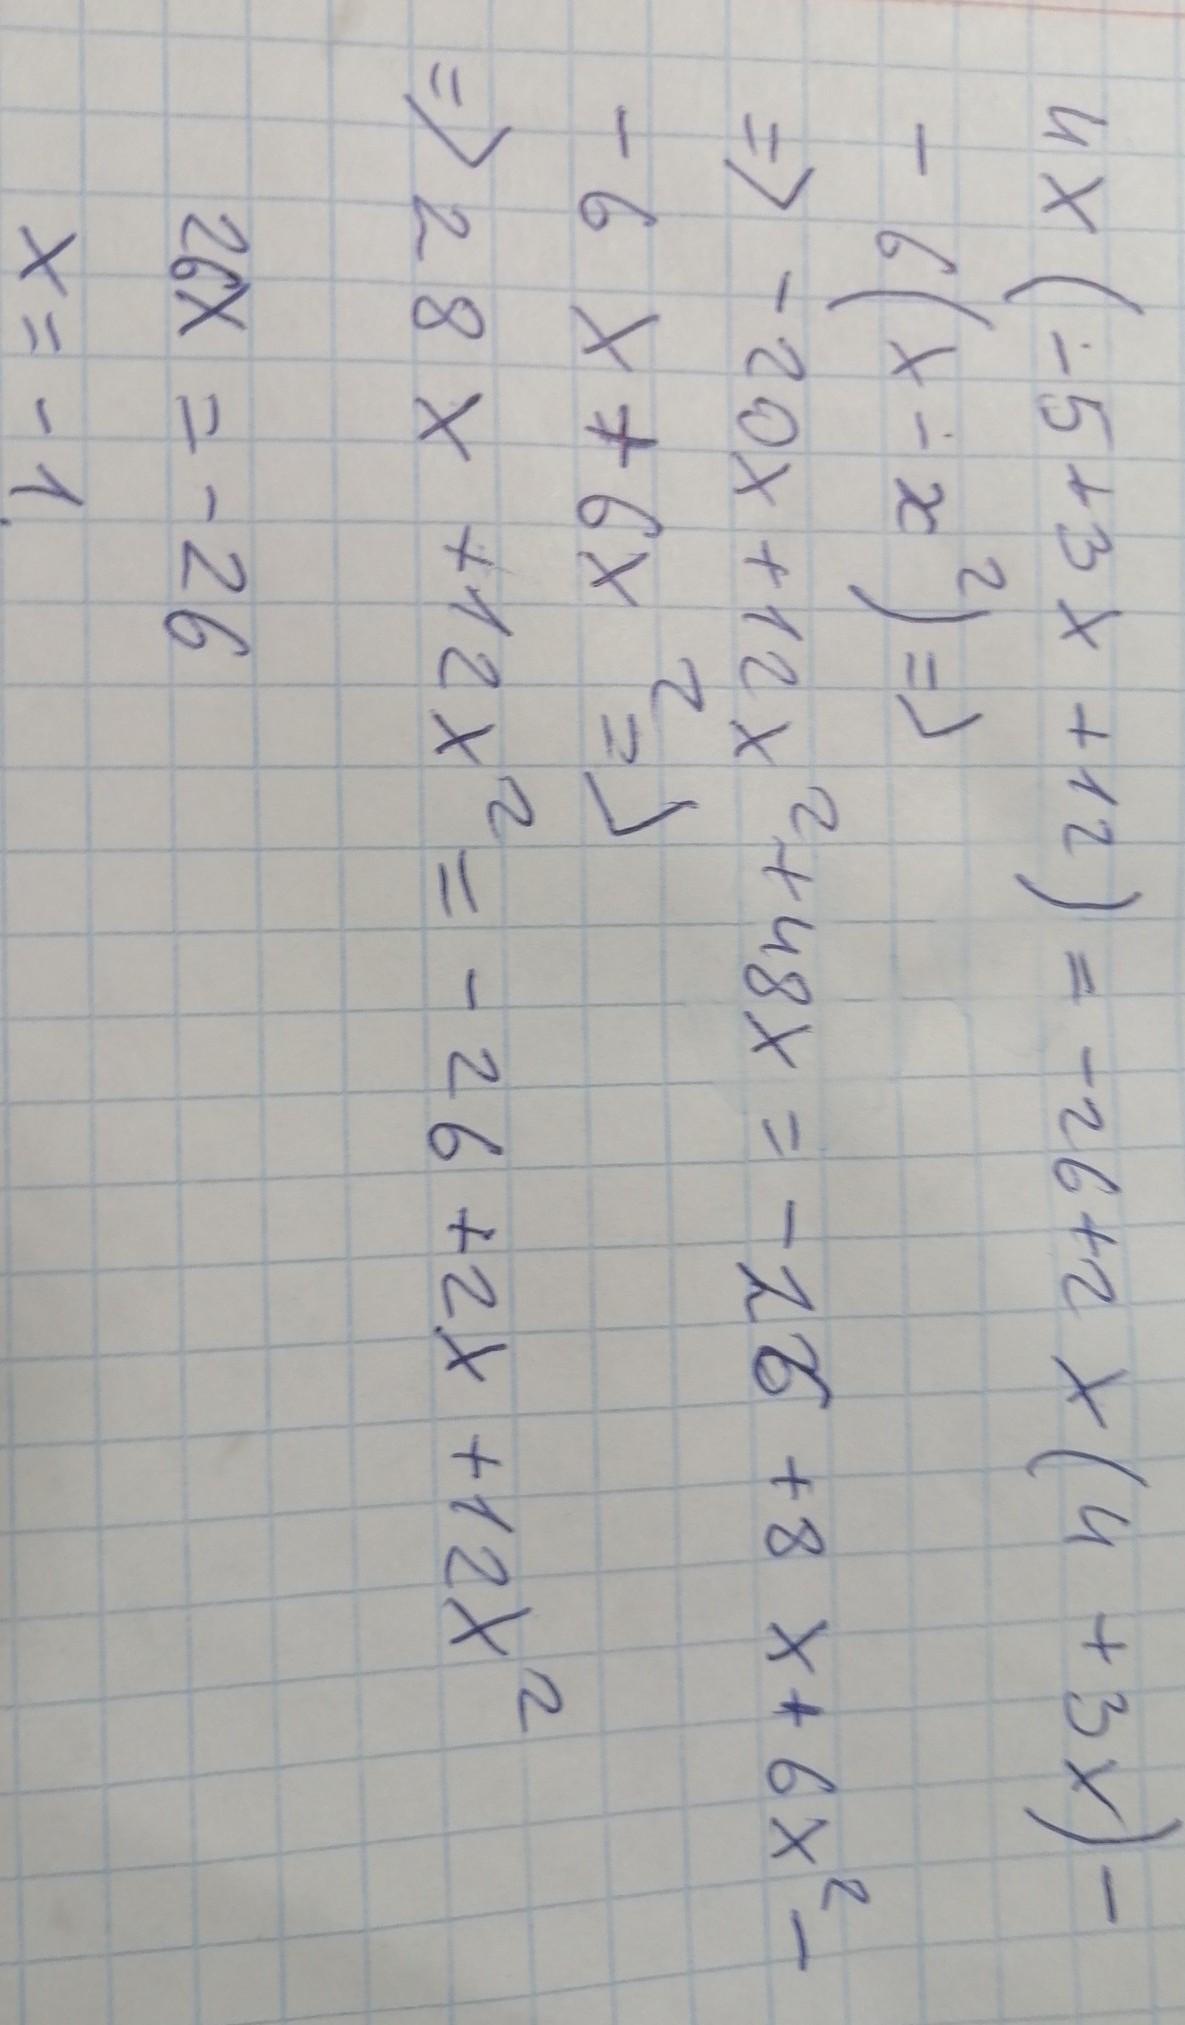 4x(-5+3x+12)=-26+2x(4+3x)-
-6(x-x²)=>
=>-20x+12x²+48x=-26+8x+6x²-
-6x+6x²=>
=>28x+12x²=-26+2x+12x²
26x=-26
x=-1